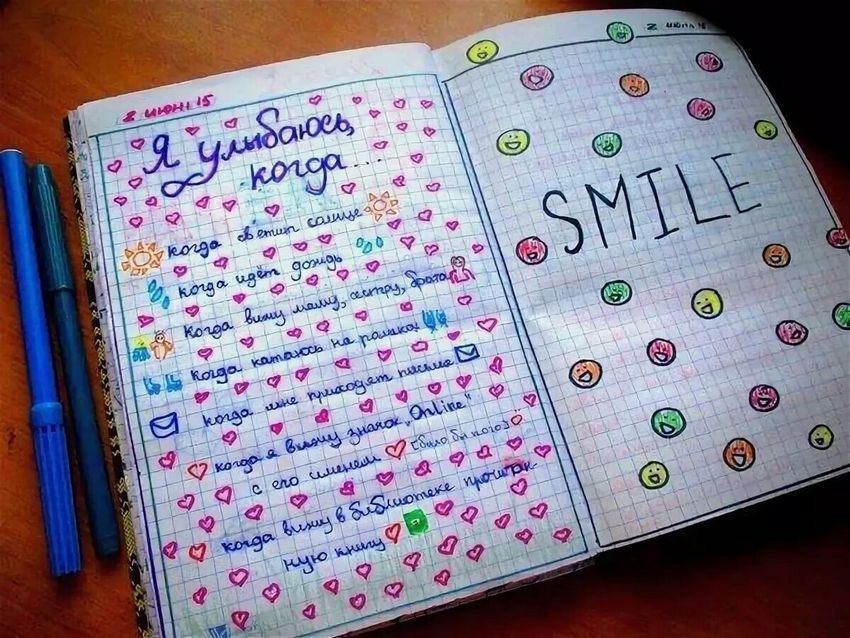 2 июні 15
Я улыбаюсь,
когда...
когда светит солнце
когда идёт дождь
когда вижу маму, сестру, брата
когда катаюсь на роликах
когда мне приходят письма
когда я вижу значок „Online"
с его именем (было бы кого)
когда вижу в библиотеке прочитан-
ную книгу
2 июнь 15
SMILE